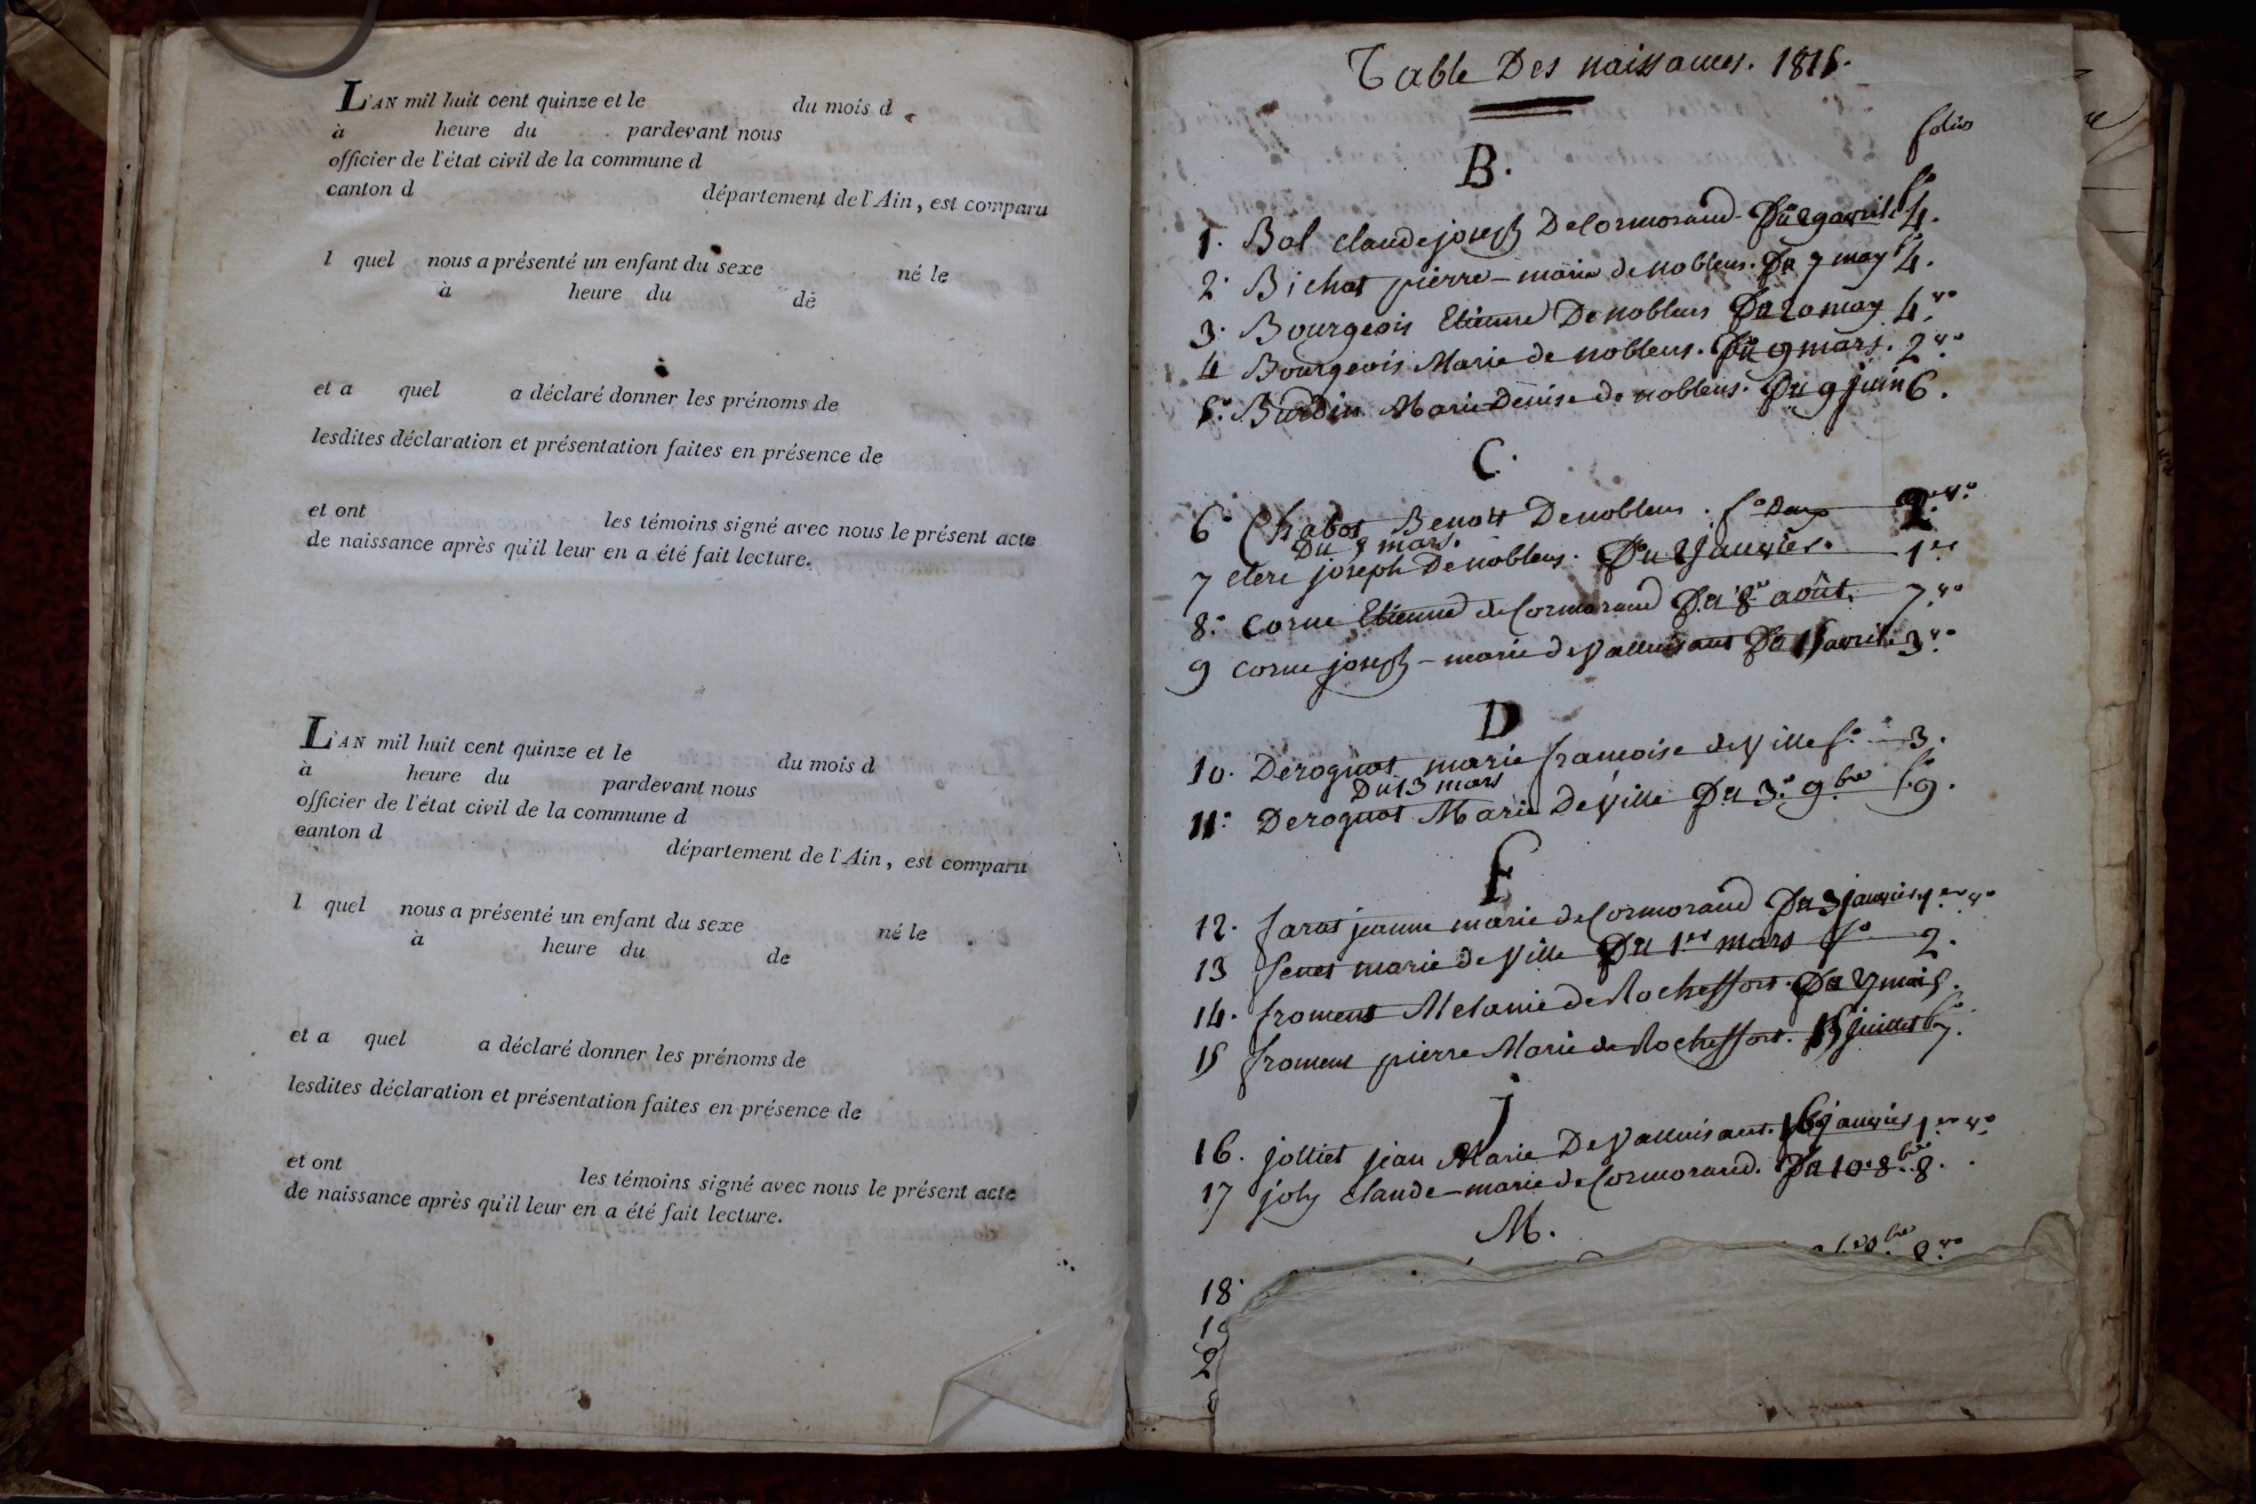 L'AN mil huit cent quinze et le du mois d
à heure du pardevant nous
officier de l'état civil de la commune d
canton d département de l'Ain, est comparu
l quel nous a présenté un enfant du sexe né le
à heure du dé
et a quel a déclaré donner les prénoms de
lesdites déclaration et présentation faites en présence de
et ont les témoins signé avec nous le présent acte
de naissance après qu'il leur en a été fait lecture.
L'AN mil huit cent quinze et le du mois d
à heure du pardevant nous
officier de l'état civil de la commune d
canton d département de l'Ain, est comparu
l quel nous a présenté un enfant du sexe né le
à heure du de
et a quel a déclaré donner les prénoms de
lesdites déclaration et présentation faites en présence de
et ont les témoins signé avec nous le présent acte
de naissance après qu'il leur en a été fait lecture.
Table Des naissances. 1815.
folio
B.
1. Bol claude joseph De Cormorand Du 29 avril fo 4.
2. Bichat pierre-marie de nobleus. Du 7 may fo 4.
3. Bourgeois Etienne De nobleus Du 20 may 4. vo
4 Bourgeois Marie de nobleus. Du 9 mars. 2 vo
5. Burdin Marie Denise de nobleus. Du 9 juin 6.
C.
6 Chabot Benoit De nobleus. fo Deux 2. vo
Du 7 mars.
7 clerc joseph De nobleus. Du 2 Janvier. 1er
8. Corne Etienne de Cormorand Du 8 août. 7. vo
9 corne joseph-marie de Valluisant Du 15 avril 3. vo
D
10. Derognat marie francoise de Ville fo 3.
Du 13 mars
11. Derognat Marie De Ville Du 3. 9.bre fo 9.
F
12. farat jeanne marie de Cormorand Du 3 janvier 1er vo
13 fenet marie de Ville Du 1er mars fo 2.
14. froment Melanie de Rocheffort. Du 27 mai 5.
15 froment pierre Marie de Rocheffort. 15 juillet fo 7.
J
16. jolliet jean Marie De Valluisant. 16 janvier 1er vo
17 joly claude-marie de Cormorand. Du 10. 8.bre 8.
M.
18.